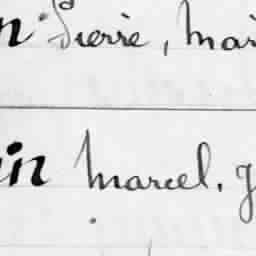 n Pierre, Mar
in Marcel, J